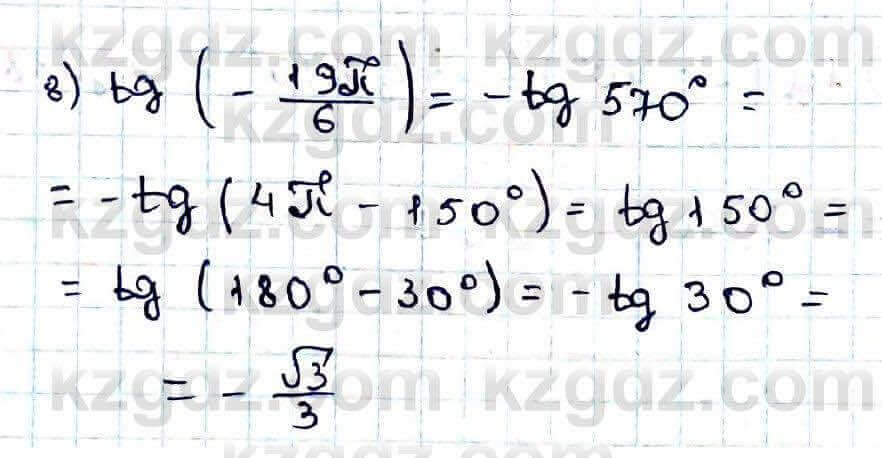 в) tg (- 19π/6) = - tg 570° =
= - tg (4π - 150°) = tg 150° =
= tg (180° - 30°) = - tg 30° =
= - √3/3
kzgdz.com kzgdz.com
kzgdz.com
kzgdz.com kzgdz.com
kzgdz.com
kzgdz.com kzgdz.com